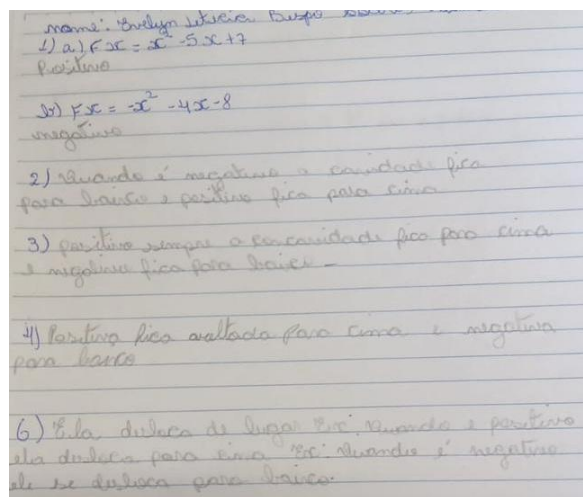 nome: Evelyn Letícia Bispo
1) a) Fx = x² -5x+7
Positivo
b) Fx = -x² -4x-8
negativo
2) Quando é negativo a cavidade fica
para baixo e positivo fica para cima
3) positivo sempre a concavidade fica para cima
e negativo fica para baixo -
4) Positiva fica voltada para cima e negativa
para baixo
6) Ela desloca de lugar Ex: Quando e positivo
ela desloca para cima Ex: Quando é negativo
ele se desloca para baixo.